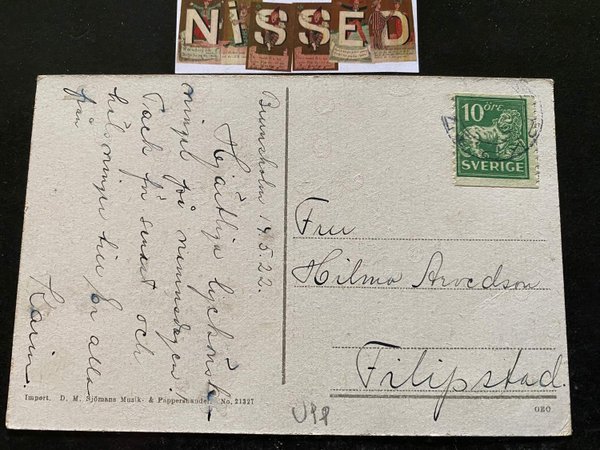 NISSED
Brunsholm 14.5.22.
Hjärtliga lyckönsk-
ningar på namnsdagen.
Tack för senast och
hälsningar till Er alla
från
Karin.
10 ÖRE
SVERIGE
Fru
Hilma Arvedson
Filipstad.
Import. D. M. Sjömans Musik- & Pappershandel. No. 21327
GEO
Upp